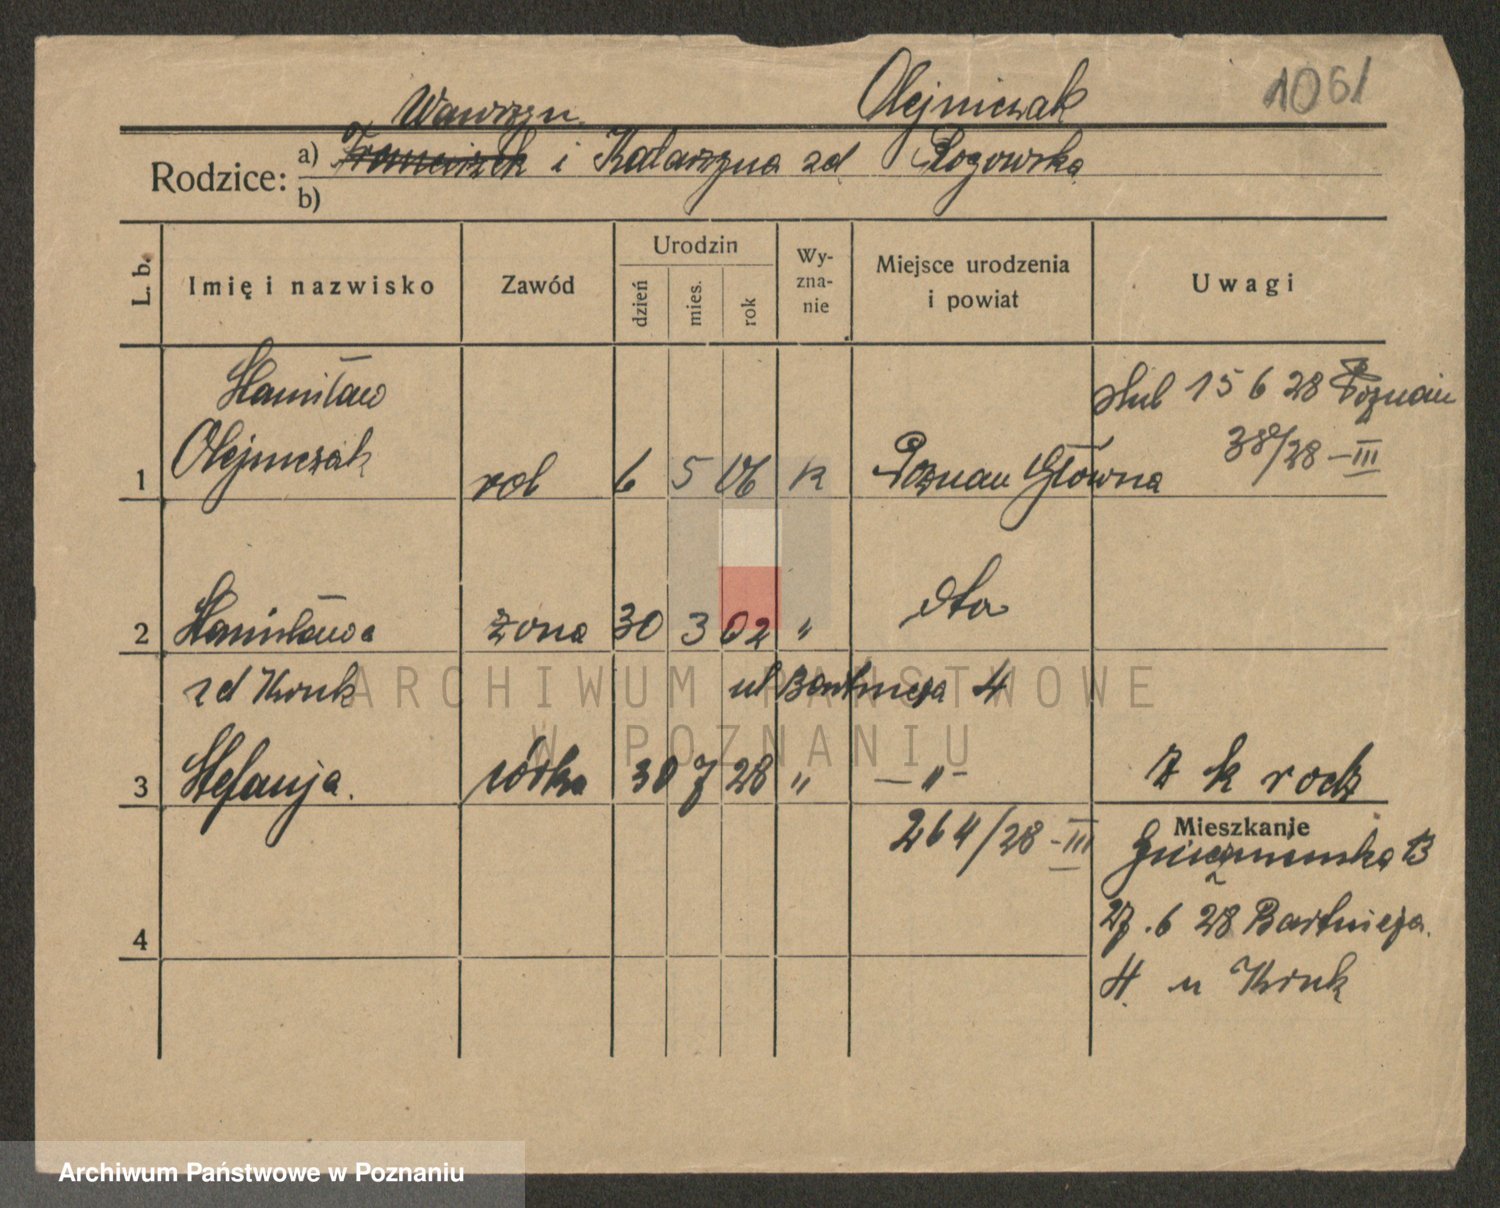 1061
Olejniczak
Wawrzyn.
Rodzice:
a) Franciszek i Katarzyna zd Rogowska
b)
L. b.
Imię i nazwisko
Zawód
Urodzin
dzień
mies.
rok
Wy-
zna-
nie
Miejsce urodzenia
i powiat
Uwagi
Stanisław
Olejniczak
1 rob 6 5 06 k Poznań Główna
ślub 15 6 28 Poznań
38/28 - III
2 Stanisława żona 30 3 02 " dto
zd Kruk ul Bartnicza 4
3 Stefanja. córka 30 7 28 " — " —
z k rodz
264/28 - III
Mieszkanie
13
27.6 28 Bartnicza.
4. u Kruk
4
ARCHIWUM PAŃSTWOWE
W POZNANIU
Archiwum Państwowe w Poznaniu